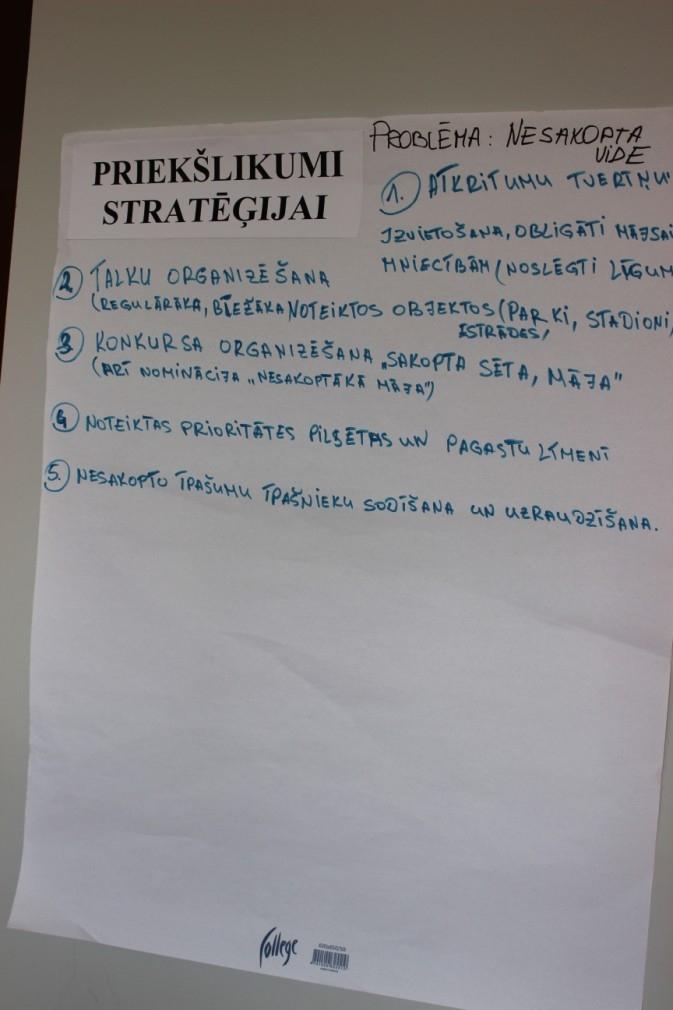 PRIEKŠLIKUMI
STRATĒĢIJAI
PROBLĒMA: NESAKOPTA
VIDE
1. ATKRITUMU TVERTŅU
IZVIETOŠANA, OBLIGĀTI MĀJSAI
MNIECĪBĀM (NOSLĒGTI LĪGUM
2 TALKU ORGANIZĒŠANA
(REGULĀRĀKA, BIEŽĀKA, NOTEIKTOS OBJEKTOS (PARKI, STADIONI,
ESTRĀDES,
3. KONKURSA ORGANIZĒŠANA „SAKOPTA SĒTA, MĀJA"
(ARĪ NOMINĀCIJA „NESAKOPTĀKĀ MĀJA")
4 NOTEIKTAS PRIORITĀTES PILSĒTAS UN PAGASTU LĪMENĪ
5. NESAKOPTO ĪPAŠUMU ĪPAŠNIEKU SODĪŠANA UN UZRAUDZĪŠANA.
College